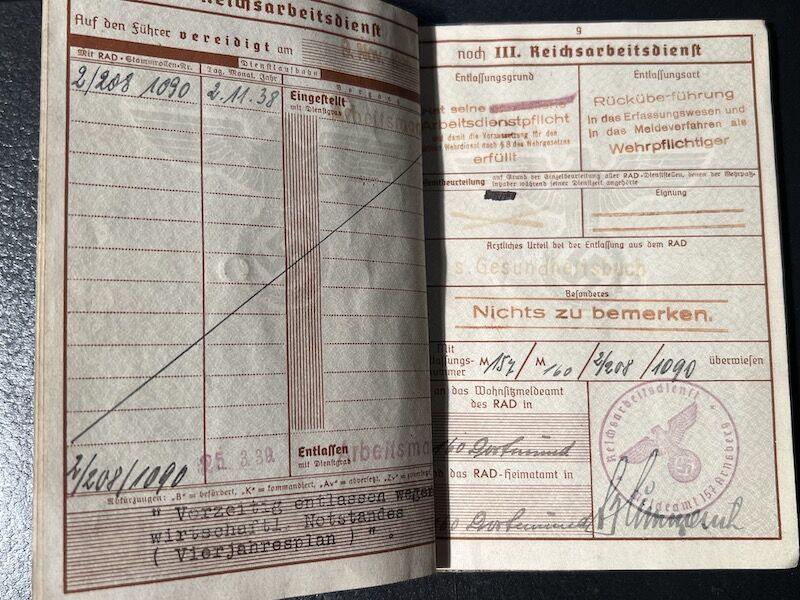 Reichsarbeitsdienst
Auf den Führer vereidigt am
Mit RAD-Stammrollen-Nr.
Dienstlaufbahn
Tag, Monat, Jahr
Vorgang
2/208 1090
2.11.38
Eingestellt
mit Dienstgrad
Arbeitsman
2/208/1090
25. 3. 39.
Entlassen
mit Dienstgrad
Arbeitsma
Abkürzungen: "B" = befördert, "K" = kommandiert, "Av" = abversetzt, "Zv" = zuversetzt
" Vorzeitig entlassen wegen
wirtschaftl. Notstandes
( Vierjahresplan ) ".
9
noch III. Reichsarbeitsdienst
Entlassungsgrund
Hat seine
Arbeitsdienstpflicht
und damit die Voraussetzung für den
Wehrdienst nach § 8 des Wehrgesetzes
erfüllt
Entlassungsart
Rücküberführung
in das Erfassungswesen und
in das Meldeverfahren als
Wehrpflichtiger
auf Grund der Einzelbeurteilung aller RAD-Dienststellen, denen der Wehrpaß-
inhaber während seiner Dienstzeit angehörte
Eignung
Ärztliches Urteil bei der Entlassung aus dem RAD
s. Gesundheitsbuch
Besonderes
Nichts zu bemerken.
Mit
nummer M 157 / M 160 / 2/208 / 1090 überwiesen
an das Wohnsitzmeldeamt
des RAD in
160 Dortmund
und das RAD-Heimatamt in
160 Dortmund
Reichsarbeitsdienst
Meldeamt 157 Arnsberg